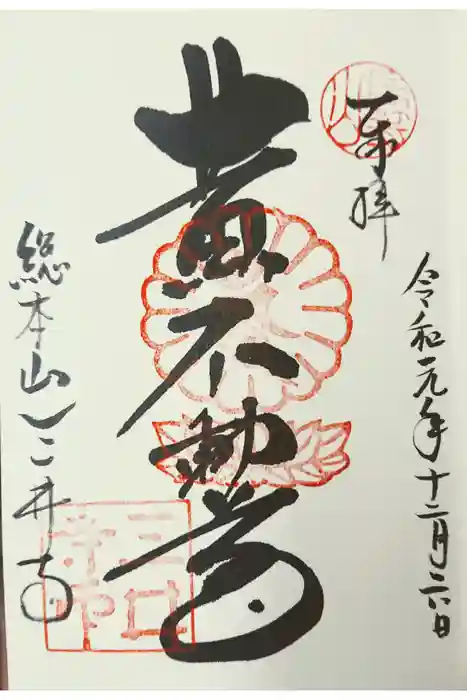 奉拝
令和元年十二月六日
黄不動尊
総本山三井寺
三井寺印